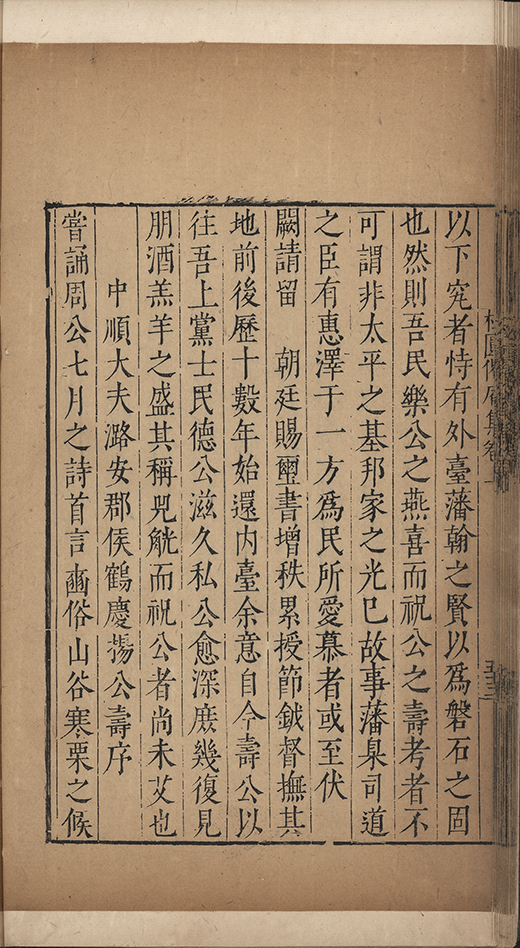 以下寃者恃有外臺藩翰之賢以爲磐石之固
也然則吾民樂公之燕喜而祝公之壽考者不
可謂非太平之基邦家之光巳故事藩臬司道
之臣有惠澤于一方爲民所愛慕者或至伏
闕請留　朝廷賜璽書增秩累授節鉞督撫其
地前後歷十數年始還内臺余意自今壽公以
往吾上黨士民德公滋久私公愈深庶幾復見
朋酒羔羊之盛其稱兕觥而祝公者尚未艾也
中順大夫潞安郡侯鶴慶楊公壽序
嘗誦周公七月之詩首言豳俗山谷寒栗之候